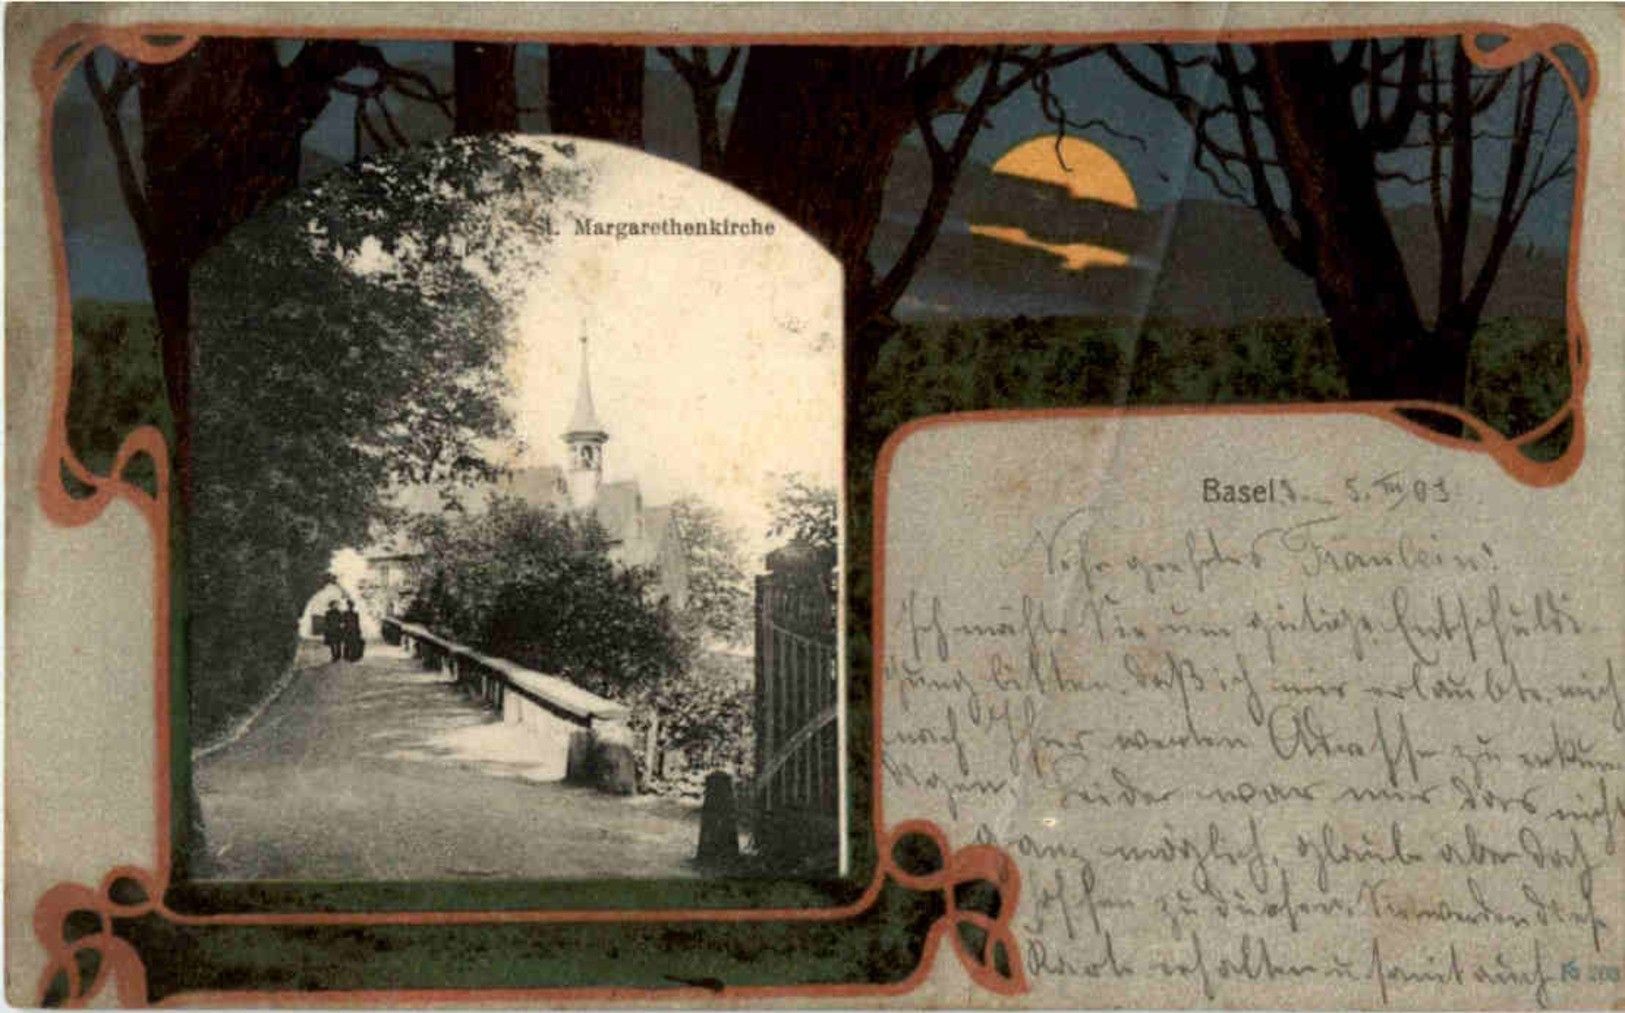 St. Margarethenkirche
Basel 5. 03
Sehr geehrtes Fräulein!
Ich möchte Sie um gütige Entschuldi-
gung bitten, daß ich mir erlaubte, mich
nach Ihrer werten Adresse zu erkun-
digen. Leider war mir das nicht
ganz möglich, glaube aber doch
hoffen zu dürfen, Sie werden diese
Karte erhalten u. somit auch